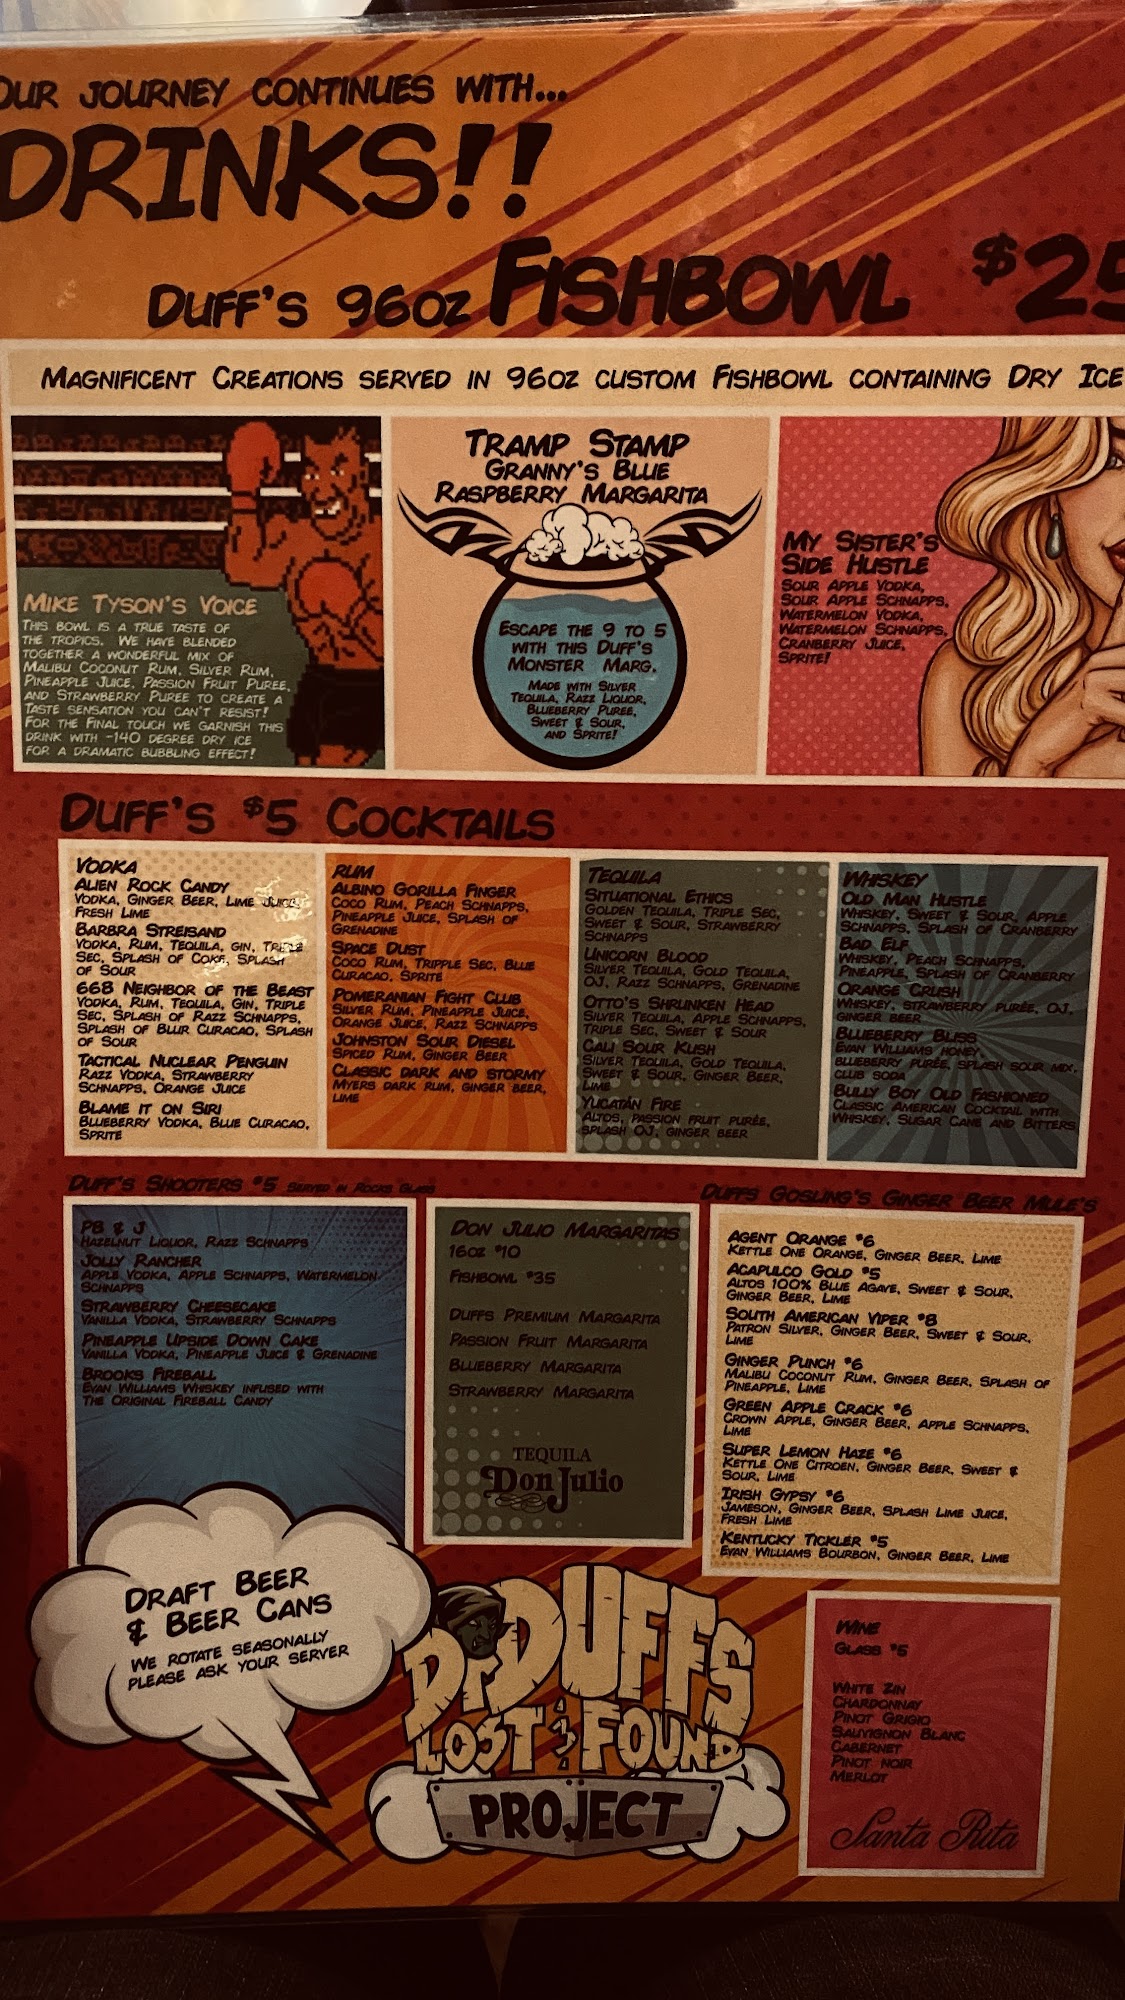 OUR JOURNEY CONTINUES WITH...
DRINKS!!
DUFF'S 96OZ FISHBOWL $25
MAGNIFICENT CREATIONS SERVED IN 96OZ CUSTOM FISHBOWL CONTAINING DRY ICE
MIKE TYSON'S VOICE
THIS BOWL IS A TRUE TASTE OF
THE TROPICS. WE HAVE BLENDED
TOGETHER A WONDERFUL MIX OF
MALIBU COCONUT RUM, SILVER RUM,
PINEAPPLE JUICE, PASSION FRUIT PUREE,
AND STRAWBERRY PUREE TO CREATE A
TASTE SENSATION YOU CAN'T RESIST!
FOR THE FINAL TOUCH WE GARNISH THIS
DRINK WITH -140 DEGREE DRY ICE
FOR A DRAMATIC BUBBLING EFFECT!
TRAMP STAMP
GRANNY'S BLUE
RASPBERRY MARGARITA
ESCAPE THE 9 TO 5
WITH THIS DUFF'S
MONSTER MARG.
MADE WITH SILVER
TEQUILA, RAZZ LIQUOR,
BLUEBERRY PUREE,
SWEET & SOUR,
AND SPRITE!
MY SISTER'S
SIDE HUSTLE
SOUR APPLE VODKA,
SOUR APPLE SCHNAPPS,
WATERMELON VODKA,
WATERMELON SCHNAPPS,
CRANBERRY JUICE,
SPRITE!
DUFF'S $5 COCKTAILS
VODKA
ALIEN ROCK CANDY
VODKA, GINGER BEER, LIME JUICE,
FRESH LIME
BARBRA STREISAND
VODKA, RUM, TEQUILA, GIN, TRIPLE
SEC, SPLASH OF COKE, SPLASH
OF SOUR
668 NEIGHBOR OF THE BEAST
VODKA, RUM, TEQUILA, GIN, TRIPLE
SEC, SPLASH OF RAZZ SCHNAPPS,
SPLASH OF BLUR CURACAO, SPLASH
OF SOUR
TACTICAL NUCLEAR PENGUIN
RAZZ VODKA, STRAWBERRY
SCHNAPPS, ORANGE JUICE
BLAME IT ON SIRI
BLUEBERRY VODKA, BLUE CURACAO,
SPRITE
RUM
ALBINO GORILLA FINGER
COCO RUM, PEACH SCHNAPPS,
PINEAPPLE JUICE, SPLASH OF
GRENADINE
SPACE DUST
COCO RUM, TRIPPLE SEC, BLUE
CURACAO, SPRITE
POMERANIAN FIGHT CLUB
SILVER RUM, PINEAPPLE JUICE,
ORANGE JUICE, RAZZ SCHNAPPS
JOHNSTON SOUR DIESEL
SPICED RUM, GINGER BEER
CLASSIC DARK AND STORMY
MYERS DARK RUM, GINGER BEER,
LIME
TEQUILA
SITUATIONAL ETHICS
GOLDEN TEQUILA, TRIPLE SEC,
SWEET & SOUR, STRAWBERRY
SCHNAPPS
UNICORN BLOOD
SILVER TEQUILA, GOLD TEQUILA,
OJ, RAZZ SCHNAPPS, GRENADINE
OTTO'S SHRUNKEN HEAD
SILVER TEQUILA, APPLE SCHNAPPS,
TRIPLE SEC, SWEET & SOUR
CALI SOUR KUSH
SILVER TEQUILA, GOLD TEQUILA,
SWEET & SOUR, GINGER BEER,
LIME
YUCATÁN FIRE
ALTOS, PASSION FRUIT PURÉE,
SPLASH OJ, GINGER BEER
WHISKEY
OLD MAN HUSTLE
WHISKEY, SWEET & SOUR, APPLE
SCHNAPPS, SPLASH OF CRANBERRY
BAD ELF
WHISKEY, PEACH SCHNAPPS,
PINEAPPLE, SPLASH OF CRANBERRY
ORANGE CRUSH
WHISKEY, STRAWBERRY PURÉE, OJ,
GINGER BEER
BLUEBERRY BLISS
EVAN WILLIAMS HONEY,
BLUEBERRY PURÉE, SPLASH SOUR MIX,
CLUB SODA
BULLY BOY OLD FASHIONED
CLASSIC AMERICAN COCKTAIL WITH
WHISKEY, SUGAR CANE AND BITTERS
DUFF'S SHOOTERS $5 SERVED IN ROCKS GLASS
PB & J
HAZELNUT LIQUOR, RAZZ SCHNAPPS
JOLLY RANCHER
APPLE VODKA, APPLE SCHNAPPS, WATERMELON
SCHNAPPS
STRAWBERRY CHEESECAKE
VANILLA VODKA, STRAWBERRY SCHNAPPS
PINEAPPLE UPSIDE DOWN CAKE
VANILLA VODKA, PINEAPPLE JUICE & GRENADINE
BROOKS FIREBALL
EVAN WILLIAMS WHISKEY INFUSED WITH
THE ORIGINAL FIREBALL CANDY
DON JULIO MARGARITAS
16OZ $10
FISHBOWL $35
DUFFS PREMIUM MARGARITA
PASSION FRUIT MARGARITA
BLUEBERRY MARGARITA
STRAWBERRY MARGARITA
TEQUILA
Don Julio
DUFFS GOSLING'S GINGER BEER MULE'S
AGENT ORANGE $6
KETTLE ONE ORANGE, GINGER BEER, LIME
ACAPULCO GOLD $5
ALTOS 100% BLUE AGAVE, SWEET & SOUR,
GINGER BEER, LIME
SOUTH AMERICAN VIPER $8
PATRON SILVER, GINGER BEER, SWEET & SOUR,
LIME
GINGER PUNCH $6
MALIBU COCONUT RUM, GINGER BEER, SPLASH OF
PINEAPPLE, LIME
GREEN APPLE CRACK $6
CROWN APPLE, GINGER BEER, APPLE SCHNAPPS,
LIME
SUPER LEMON HAZE $6
KETTLE ONE CITROEN, GINGER BEER, SWEET &
SOUR, LIME
IRISH GYPSY $6
JAMESON, GINGER BEER, SPLASH LIME JUICE,
FRESH LIME
KENTUCKY TICKLER $5
EVAN WILLIAMS BOURBON, GINGER BEER, LIME
DRAFT BEER
& BEER CANS
WE ROTATE SEASONALLY
PLEASE ASK YOUR SERVER
Dr DUFFS
LOST & FOUND
PROJECT
WINE
GLASS $5
WHITE ZIN
CHARDONNAY
PINOT GRIGIO
SAUVIGNON BLANC
CABERNET
PINOT NOIR
MERLOT
Santa Rita